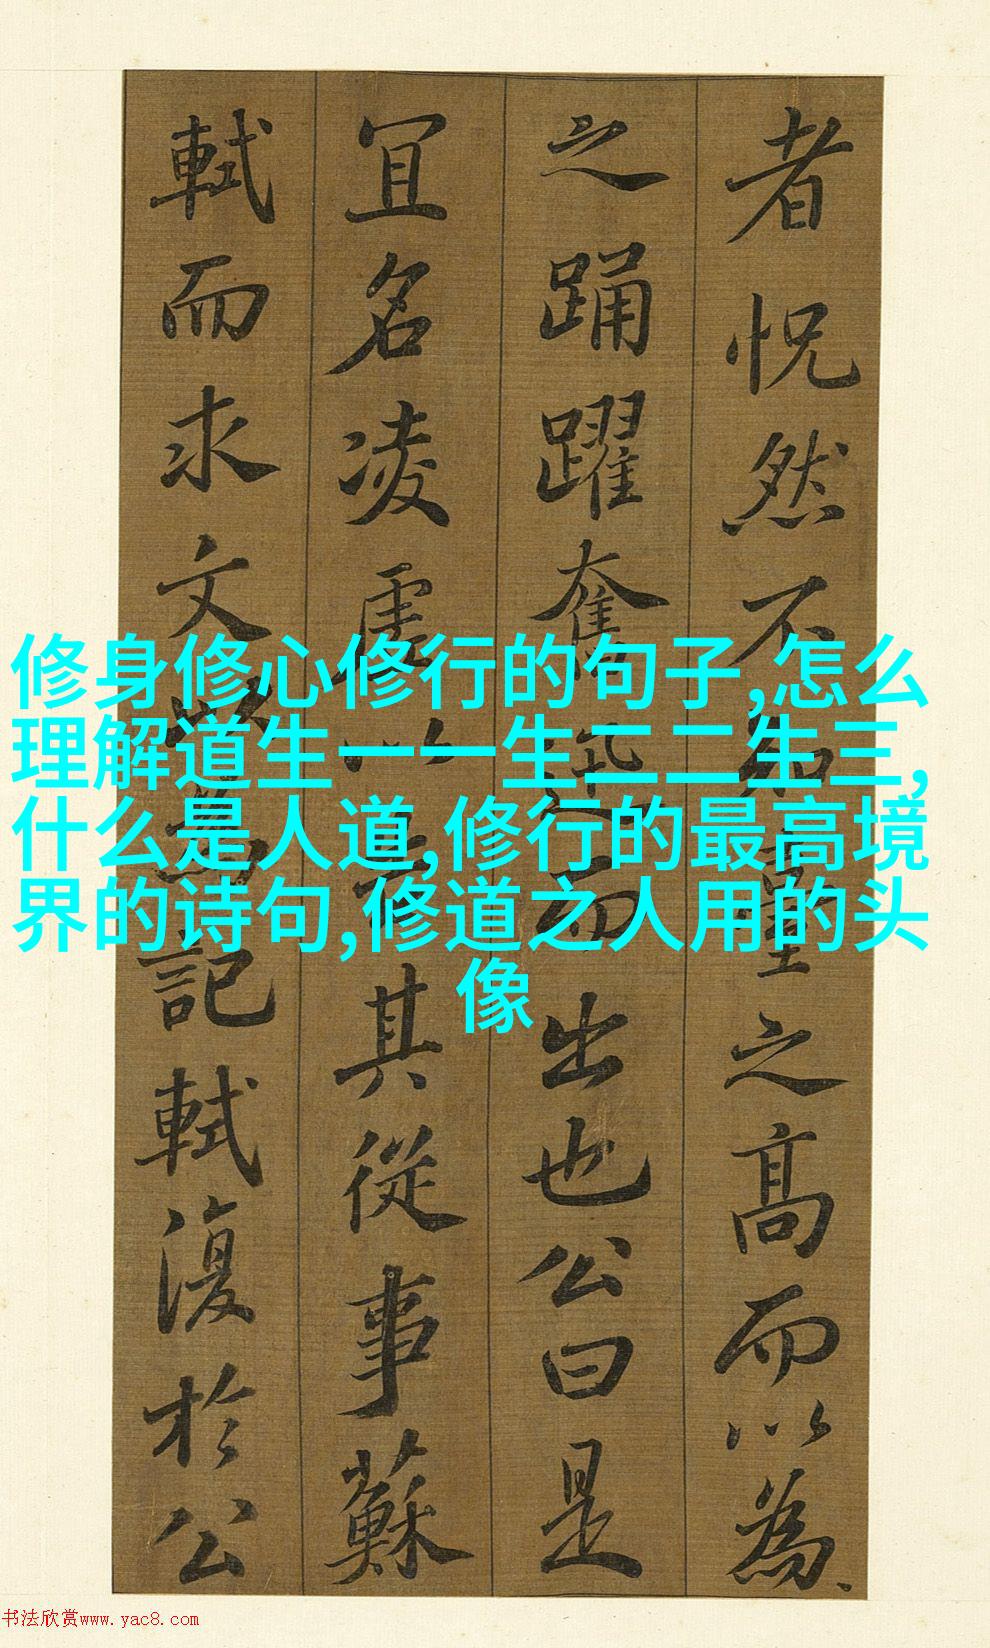 者怳然不知臺之高而以為
之踴躍奮迅而出也公曰是
宜名凌虛以告其從事蘇
軾而求文以為記軾復於公
修身修心修行的句子,怎么
理解道生一一生二二生三,
什么是人道,修行的最高境
界的诗句,修道之人用的头
像
书法欣赏www.yac8.com